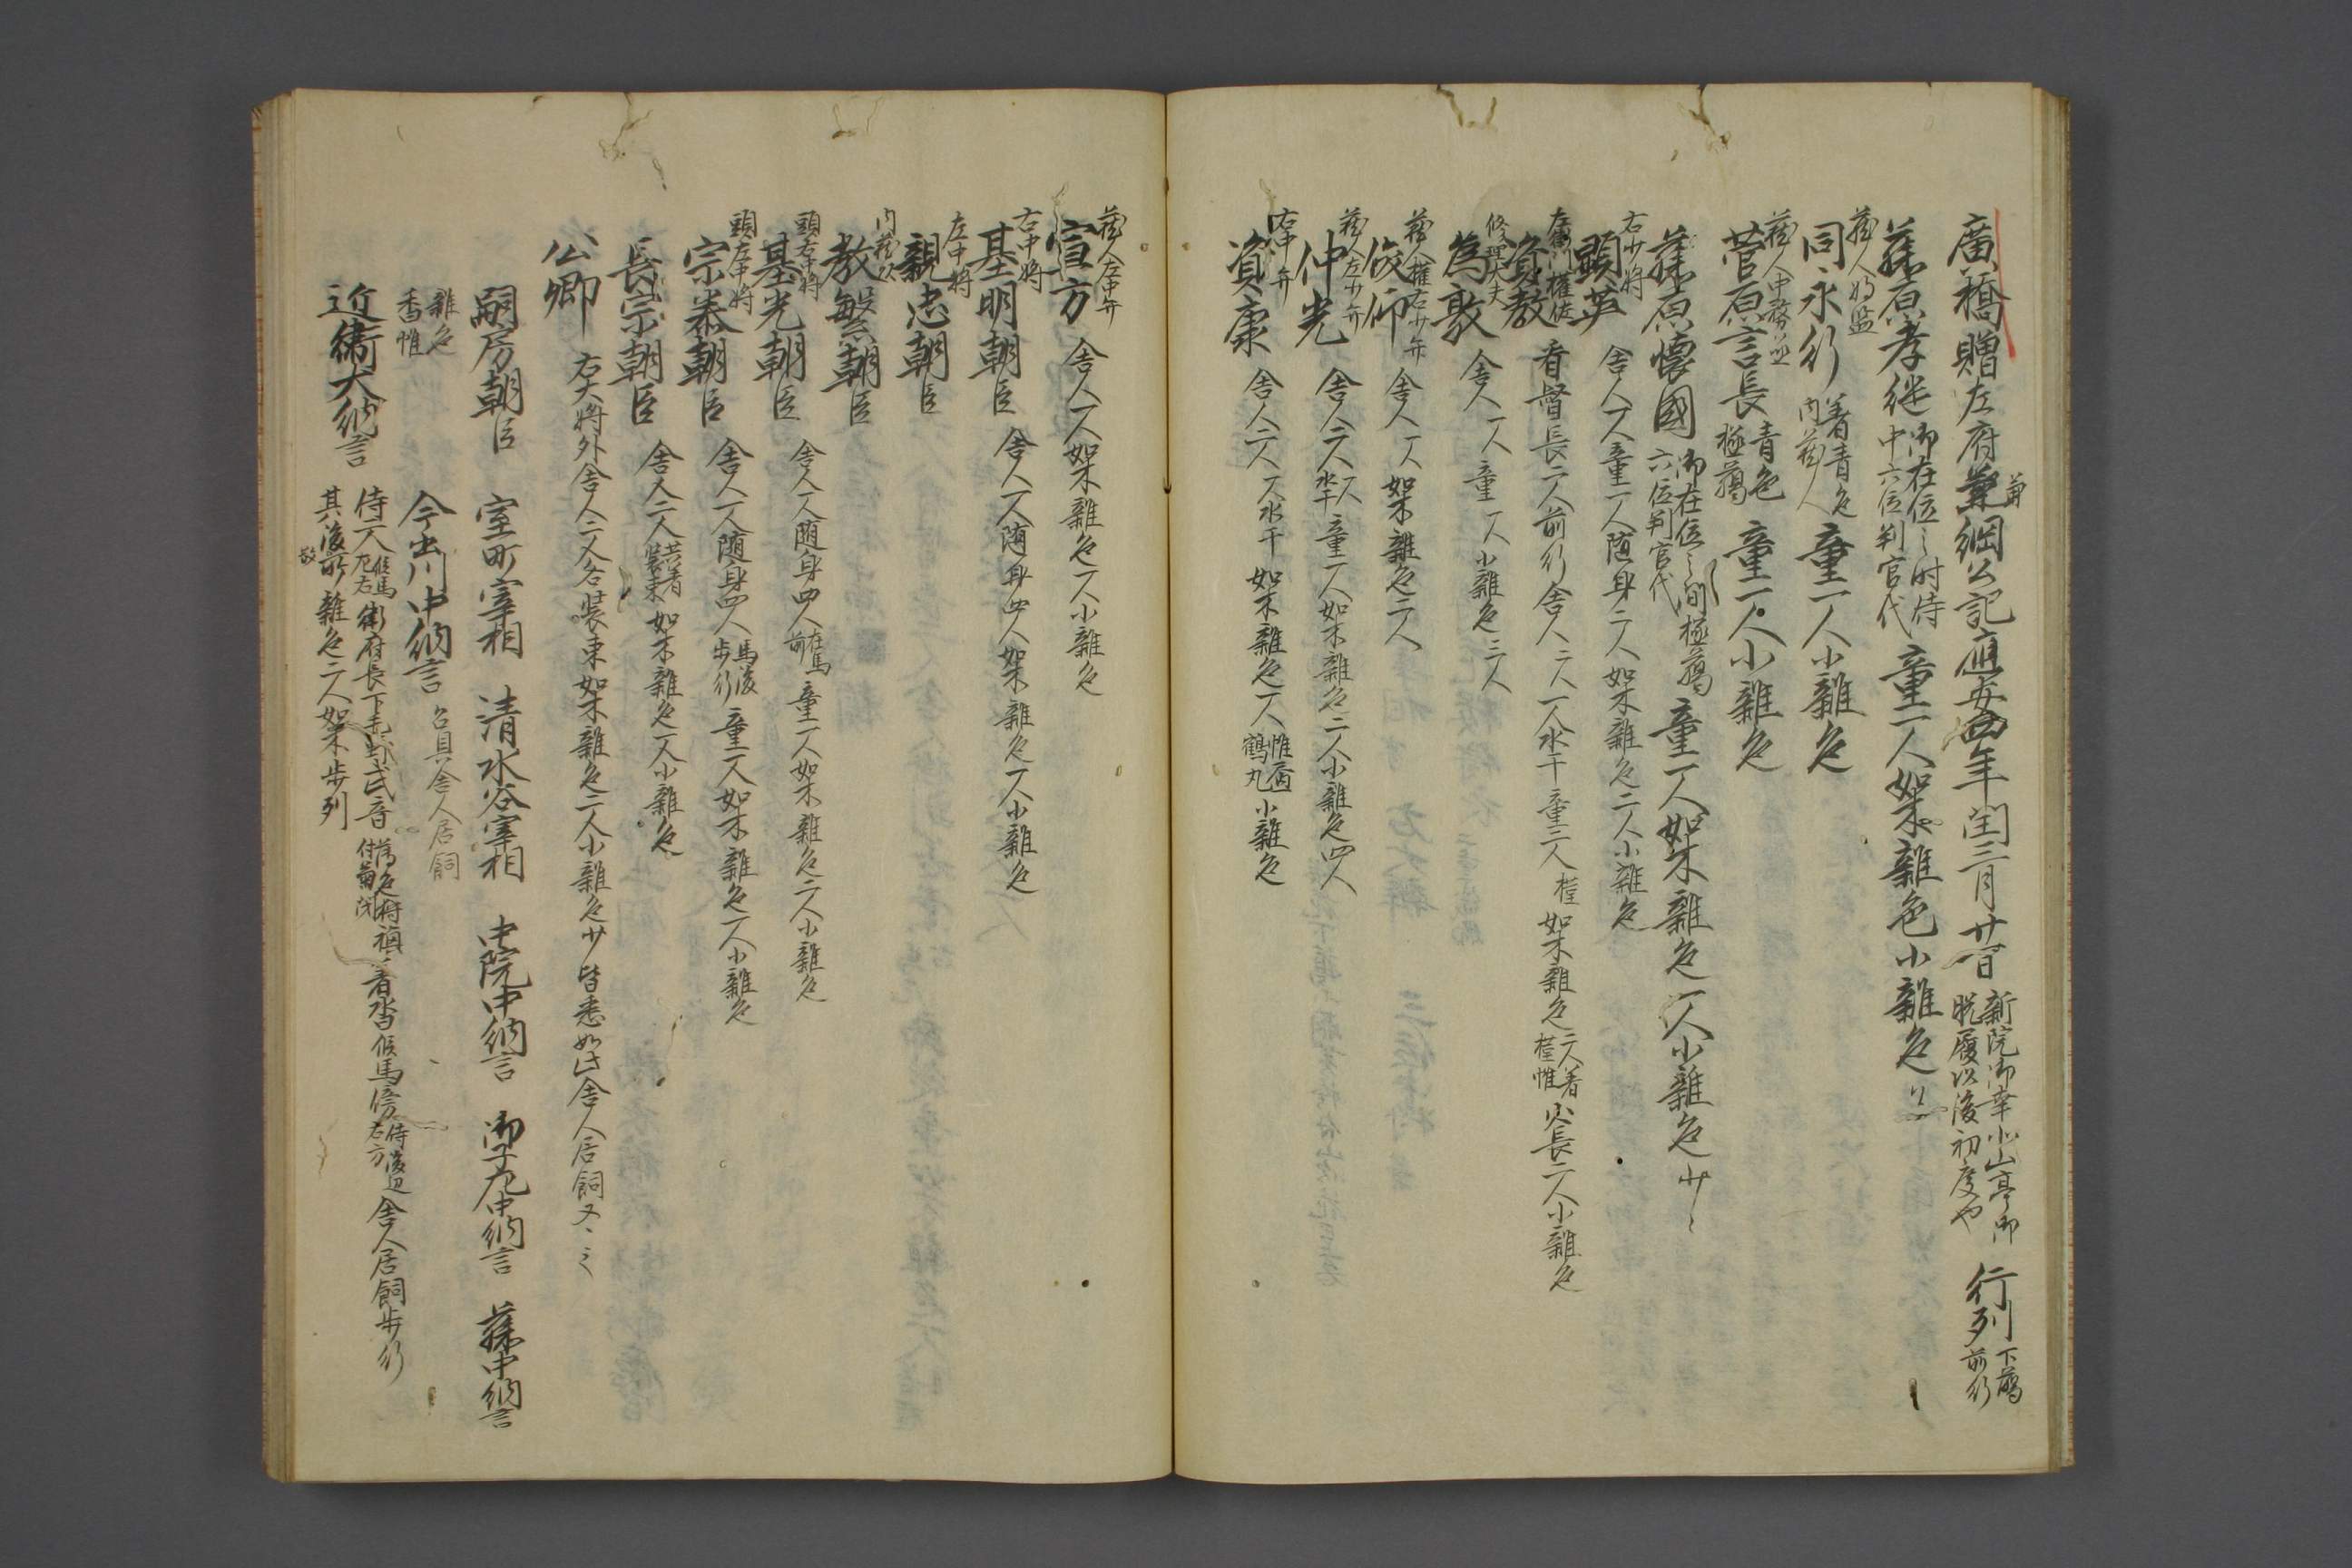 廣橋贈左府兼綱公記應安四年閏三月廿一日 新院御幸北山亭御脱屣以後初度也 行列 下﨟前行
藤原孝継 御在位之时侍中六位判官代 童一人如木雜色小雜色
蔵人将监
同永行 着青色内蔵人 童一人小雜色
蔵人中務丞
菅原言長 青色極﨟 童一人小雜色
藤原懐國 御在位之間極﨟六位判官代 童一人如木雜色一人小雜色
右少将
頭英 舎人一人童一人随身二人如木雜色二人小雜色
左衛門権佐
資教 看督長二人前行舎人二人一人水干童二人 如木雜色二人着 火長二人小雜色
修理大夫
為敦 舎人一人童一人小雜色三人
蔵人権右少弁
俊仰 舎人一人如木雜色二人
蔵人左少弁
仲光 舎人二人一人水干童一人如木雜色二人小雜色四人
右中弁
資康 舎人二人一人水干如木雜色一人 鶴丸小雜色
蔵人左中弁
宣方 舎人一人如木雜色一人小雜色
右中将
基明朝臣 舎人一人随身四人如木雜色一人小雜色
左中将
親忠朝臣
内蔵頭
教繁朝臣
頭右中将
基光朝臣 舎人一人随身四人在馬前童一人如木雜色二人小雜色
頭左中将
宗泰朝臣 舎人一人随身四人馬後歩行童一人如木雜色一人小雜色
長宗朝臣 舎人二人 如木雜色一人小雜色
公卿 右大将外舎人二人各装束如木雜色二人小雜色少皆悉如此舎人居飼又
嗣房朝臣 室町宰相 清水谷宰相 中院中納言 御子左中納言 藤中納言
雜色香帷 今出川中納言 召具舎人居飼
近衛大納言 侍二人 衛府長下毛野武音 着沓候馬傍 舎人居飼歩行
其後 雜色二人如木歩列